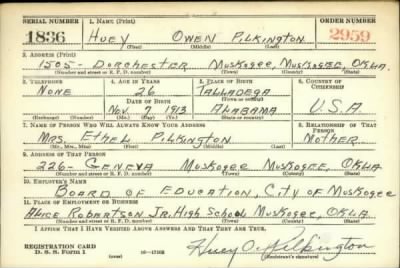 SERIAL NUMBER 1. NAME (Print) ORDER NUMBER
1836 HUEY OWEN PILKINGTON 2959
(First) (Middle) (Last)
2. ADDRESS (Print)
1505- DORCHESTER MUSKOGEE, MUSKOGEE, OKLA.
(Number and street or R. F. D. number) (Town) (County) (State)
3. TELEPHONE 4. AGE IN YEARS 5. PLACE OF BIRTH 6. COUNTRY OF CITIZENSHIP
NONE 26 TALLADEGA
DATE OF BIRTH
NOV. 7 1913 ALABAMA U.S.A
(Exchange) (Number) (Mo.) (Day) (Yr.) (State or country)
7. NAME OF PERSON WHO WILL ALWAYS KNOW YOUR ADDRESS 8. RELATIONSHIP OF THAT PERSON
MRS. ETHEL PILKINGTON MOTHER
(Mr., Mrs., Miss) (First) (Middle) (Last)
9. ADDRESS OF THAT PERSON
226- GENEVA MUSKOGEE MUSKOGEE, OKLA
(Number and street or R. F. D. number) (Town) (County) (State)
10. EMPLOYER'S NAME
BOARD OF EDUCATION, CITY OF MUSKOGEE
11. PLACE OF EMPLOYMENT OR BUSINESS
ALICE ROBERTSON JR. HIGH SCHOOL MUSKOGEE, OKLA
(Number and street or R. F. D. number) (Town) (County) (State)
I AFFIRM THAT I HAVE VERIFIED ABOVE ANSWERS AND THAT THEY ARE TRUE.
REGISTRATION CARD
D. S. S. Form 1 Huey O. Pilkington
(Registrant's signature)